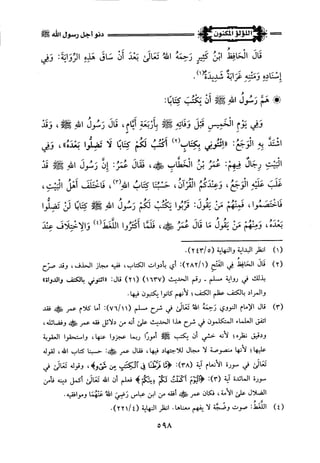 اللؤلؤ المكنون
دنو أجل رسول الله ﷺ
قَالَ الْحَافِظُ ابْنُ كَثِيرٍ رَحِمَهُ اللهُ تَعَالَى بَعْدَ أَنْ سَاقَ هَذِهِ الرِّوَايَةَ: وَفِي
إِسْنَادِهِ وَمَتْنِهِ غَرَابَةٌ شَدِيدَةٌ(١).
* هَمَّ رَسُولُ اللهِ ﷺ أَنْ يَكْتُبَ كِتَابًا:
وَفِي يَوْمِ الْخَمِيسِ قَبْلَ وَفَاتِهِ ﷺ بِأَرْبَعَةِ أَيَّامٍ، قَالَ رَسُولُ اللهِ ﷺ، وَقَدِ
اشْتَدَّ بِهِ الْوَجَعُ: «ائْتُونِي بِكِتَابٍ(٢) أَكْتُبْ لَكُمْ كِتَابًا لَا تَضِلُّوا بَعْدَهُ»، وَفِي
الْبَيْتِ رِجَالٌ فِيهِمْ: عُمَرُ بْنُ الْخَطَّابِ ﷺ، فَقَالَ عُمَرُ: إِنَّ رَسُولَ اللهِ ﷺ قَدْ
غَلَبَ عَلَيْهِ الْوَجَعُ، وَعِنْدَكُمُ الْقُرْآنُ، حَسْبُنَا كِتَابُ اللهِ(٣)، فَاخْتَلَفَ أَهْلُ الْبَيْتِ،
فَاخْتَصَمُوا، فَمِنْهُمْ مَنْ يَقُولُ: قَرِّبُوا يَكْتُبْ لَكُمْ رَسُولُ اللهِ ﷺ كِتَابًا لَنْ تَضِلُّوا
بَعْدَهُ، وَمِنْهُمْ مَنْ يَقُولُ مَا قَالَ عُمَرُ، فَلَمَّا أَكْثَرُوا اللَّغَطَ(٤) وَالِاخْتِلَافَ عِنْدَ
(١) انظر البداية والنهاية (٢٤٣/٥).
(٢) قال الحافظ في الفتح (٢٨٢/١): أي بأدوات الكتاب، ففيه مجاز الحذف، وقد صرح
بذلك في رواية مسلم - رقم الحديث (١٦٣٧) (٢١) قال: «ائتوني بالكتف والدواة»
والمراد بالكتف عظم الكتف؛ لأنهم كانوا يكتبون فيها.
(٣) قال الإمام النووي رَحِمَهُ اللهُ تَعَالَى في شرح مسلم (٧٦/١١): أما كلام عمر فقد
اتفق العلماء المتكلمون في شرح هذا الحديث على أنه من دلائل فقه عمر وفضائله،
ودقيق نظره؛ لأنه خشي أن يكتب ﷺ أمورًا ربما عجزوا عنها، واستحقوا العقوبة
عليها؛ لأنها منصوصة لا مجال للاجتهاد فيها، فقال عمر: حسبنا كتاب الله، لقوله
تعالى في سورة الأنعام آية (٣٨): ﴿مَّا فَرَّطْنَا فِي الْكِتَابِ مِن شَيْءٍ﴾، وقوله تعالى في
سورة المائدة آية (٣): ﴿الْيَوْمَ أَكْمَلْتُ لَكُمْ دِينَكُمْ﴾ فعلم أن الله تعالى أكمل دينه فأمن
الضلال على الأمة، فكان عمر أفقه من ابن عباس رَضِيَ اللهُ عَنْهُمَا وموافقيه.
(٤) اللغط: صوت وضجة لا يفهم معناها. انظر النهاية (٢٢١/٤).
٥٩٨